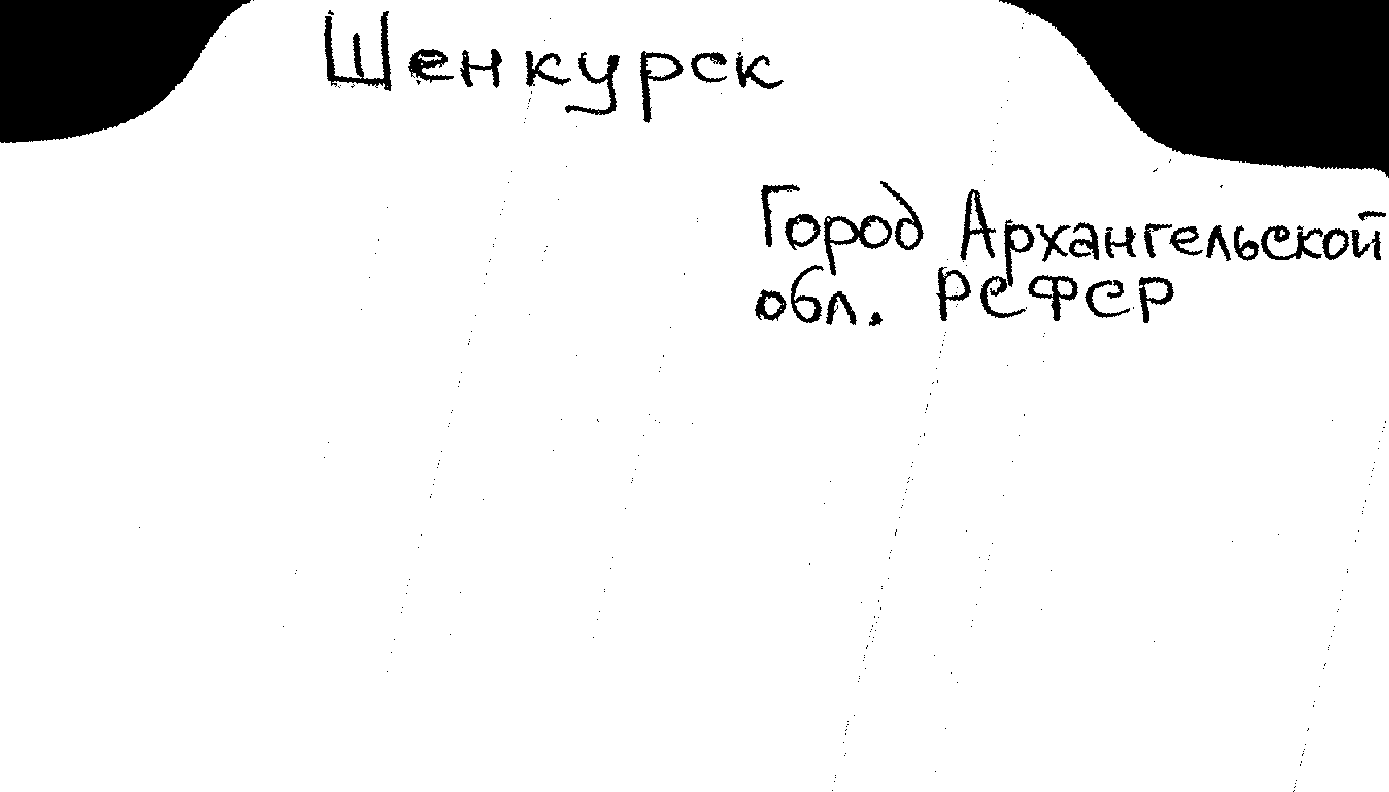 Шенкурск
Город Архангельской
обл. РСФСР